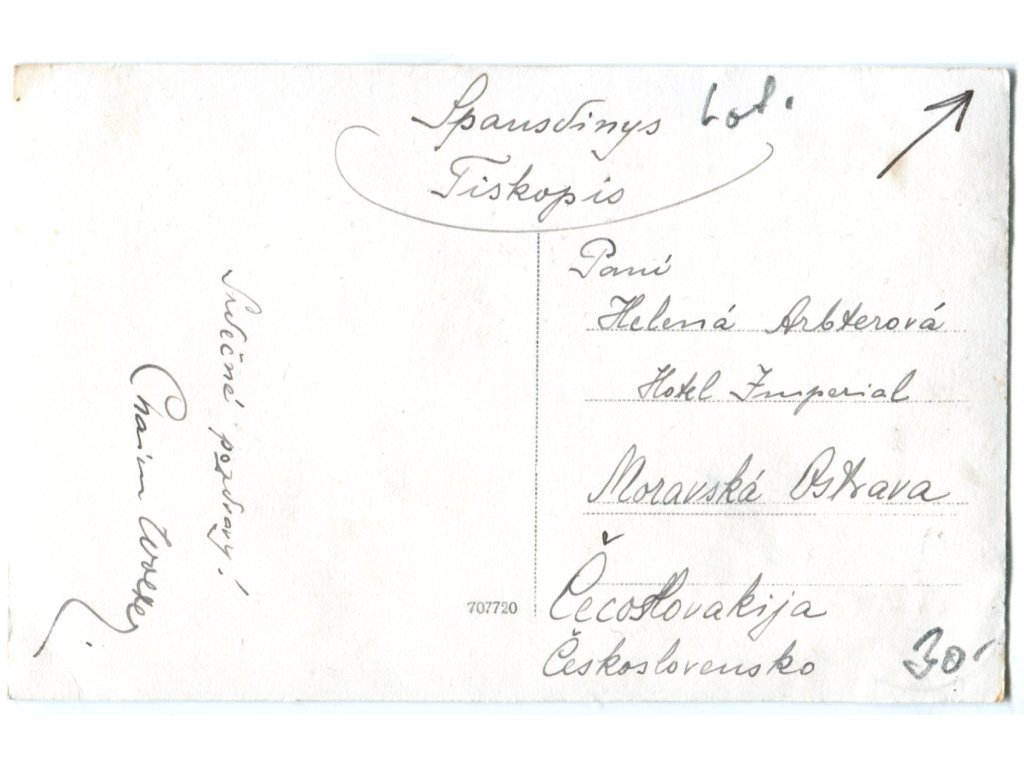 Spausdinys
Lot.
Tiskopis
Paní
Helená Arbterová
Hotel Imperial
Moravská Ostrava
Čecoslovakija
Československo
Srdečné pozdravy!
Chaim
707720
30